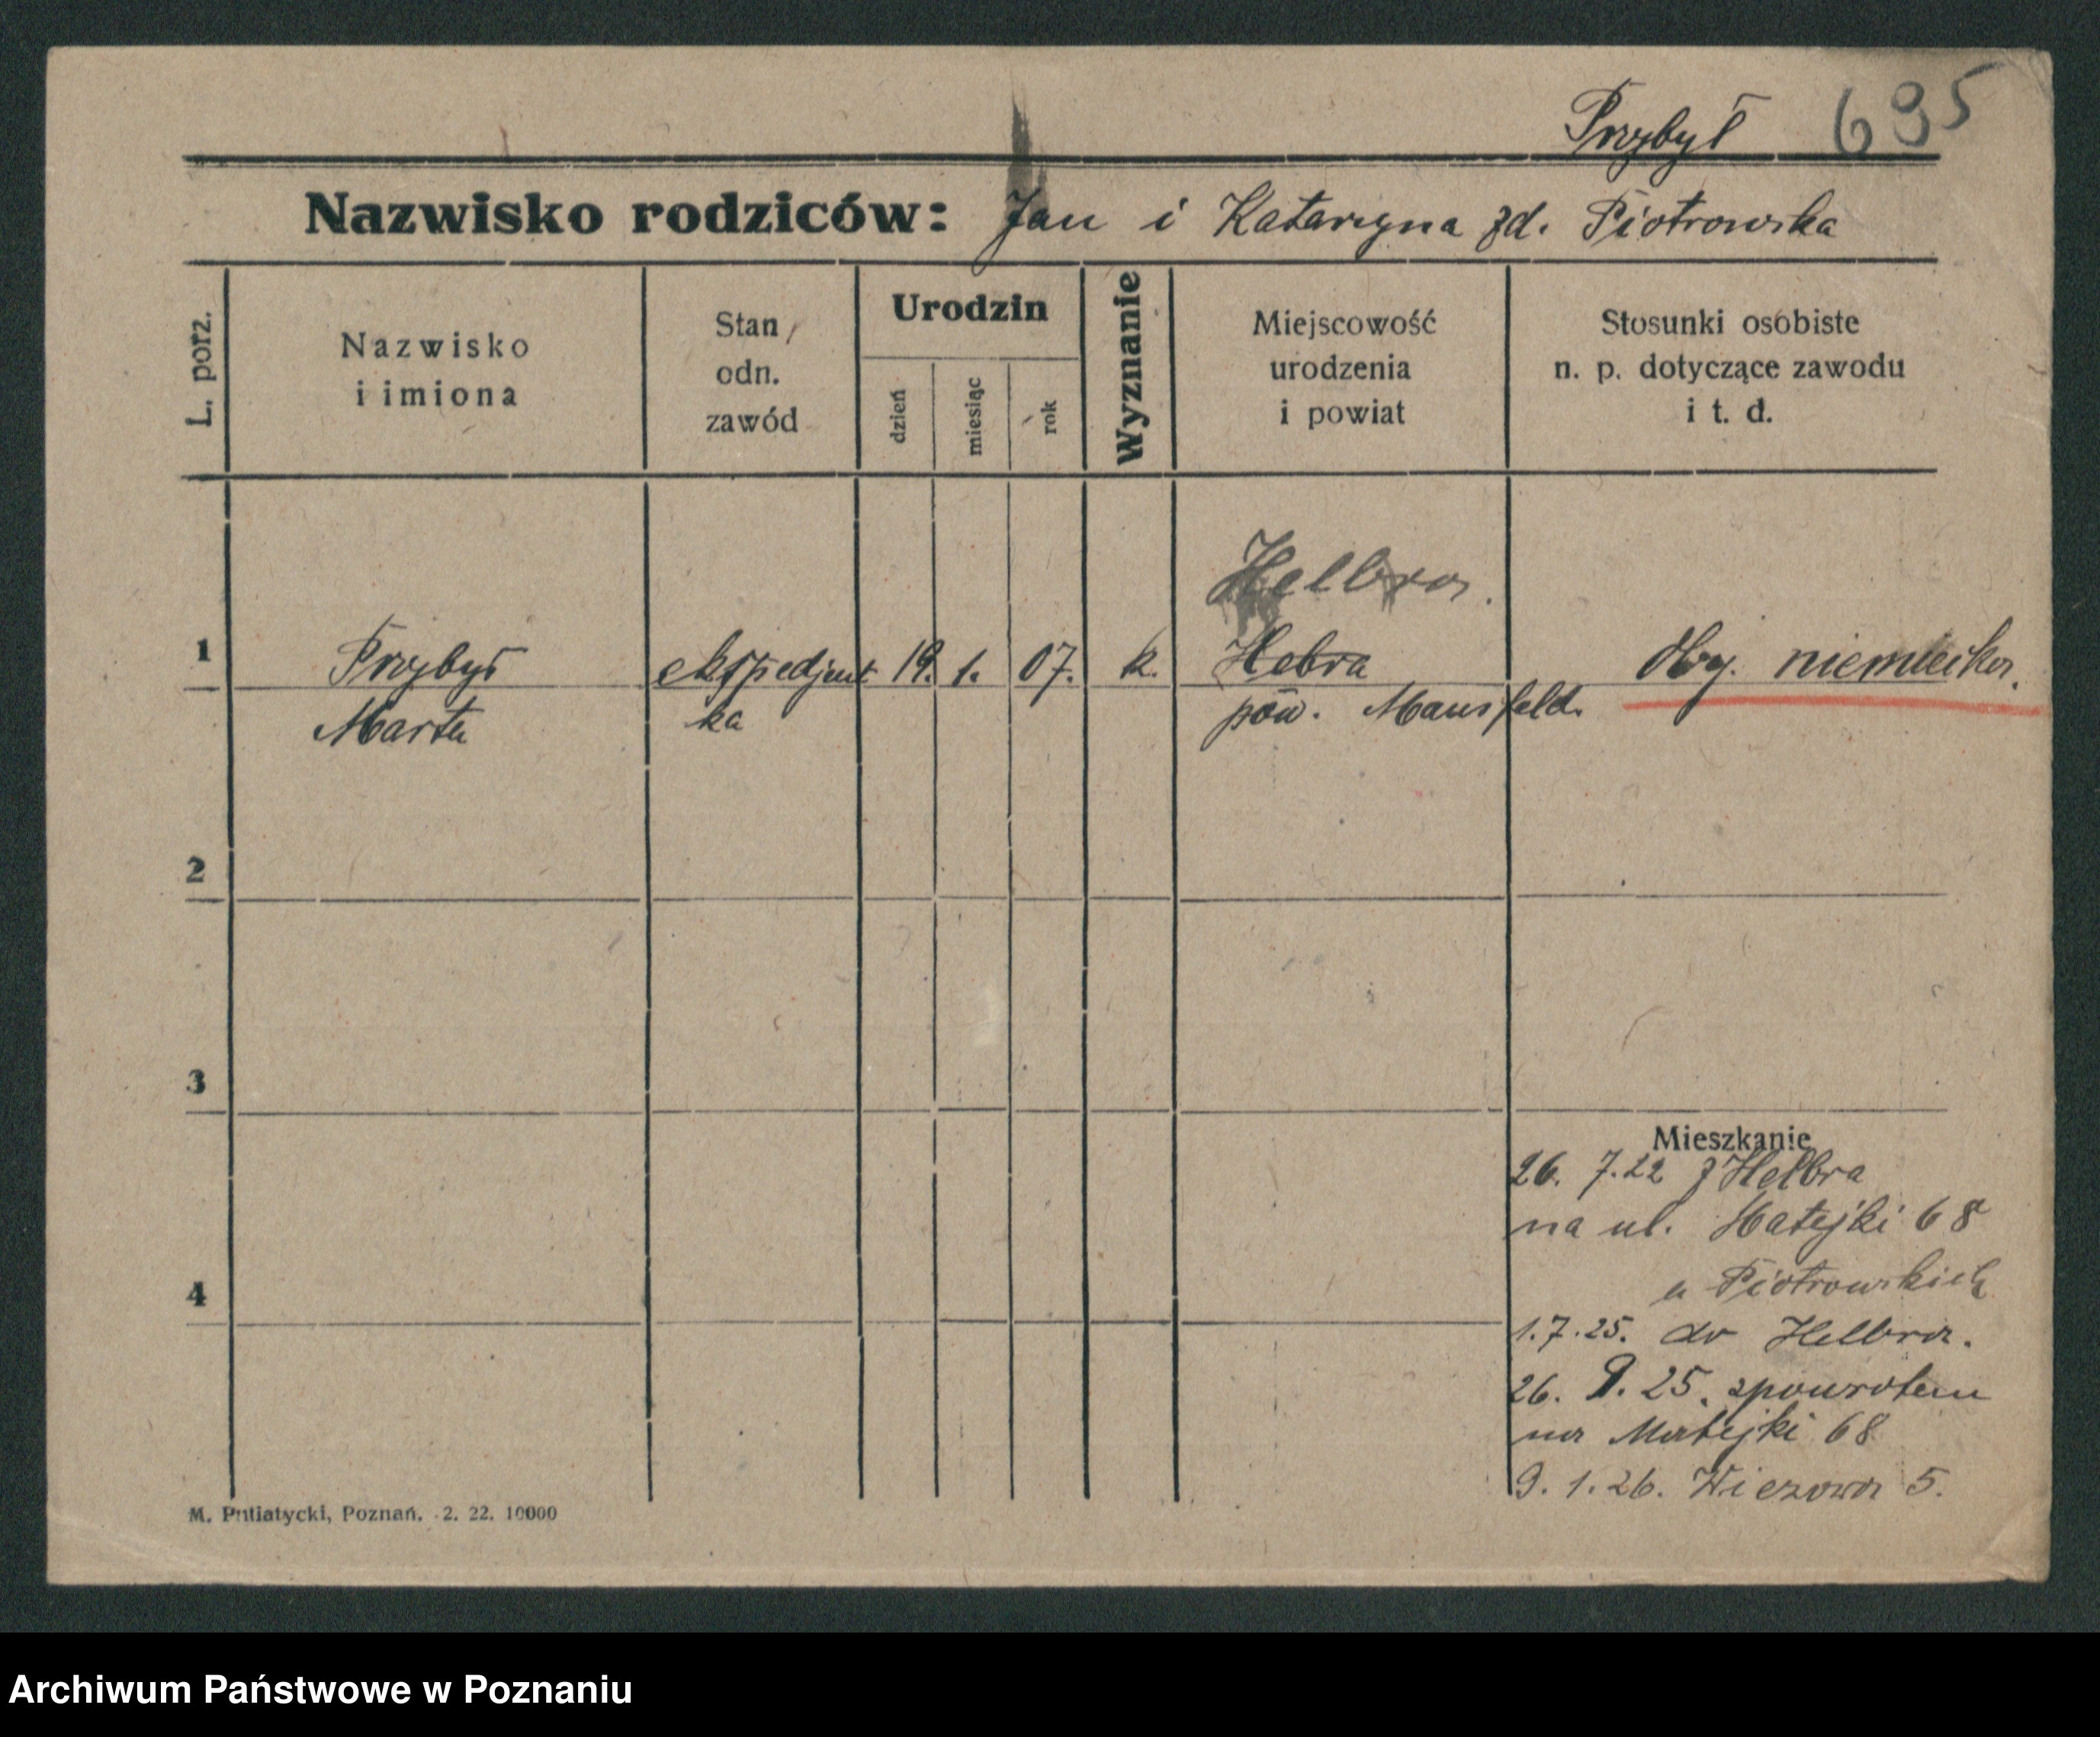 Przybył 695
Nazwisko rodziców: Jan i Katarzyna zd. Piotrowska
L. porz.
Nazwisko
i imiona
Stan
odn.
zawód
Urodzin
dzień
miesiąc
rok
Wyznanie
Miejscowość
urodzenia
i powiat
Stosunki osobiste
n. p. dotyczące zawodu
i t. d.
Helbra.
1 Przybył ekspedjent 19. 1. 07. k. Hebra Oby. niemiecka.
Marta ka pow. Mansfeld.
2
3
4
Mieszkanie
26. 7. 22 z Helbra
na ul. Matejki 68
u Piotrowskich
1. 7. 25. do Helbra.
26. 9. 25. spowrotem
na Matejki 68
9. 1. 26. 5.
M. Putiatycki, Poznań. 2. 22. 10000
Archiwum Państwowe w Poznaniu